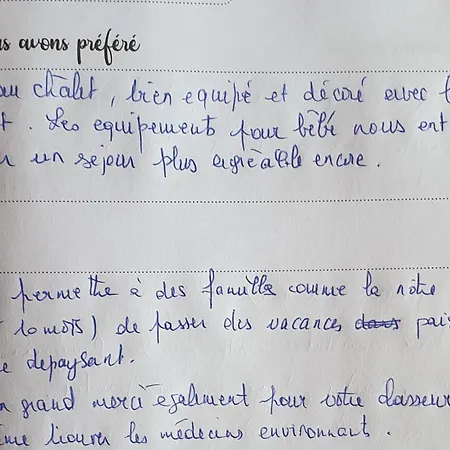 s avons préféré
au châlet, bien equipé et décoré avec
t. Les equipements pour bébé nous ont
un séjour plus agréable encore.
permettre à des familles comme la nôtre
10 mois) de passer des vacances dans
e depaysant.
n grand merci également pour votre classeur
me trouver les médecins environnant.